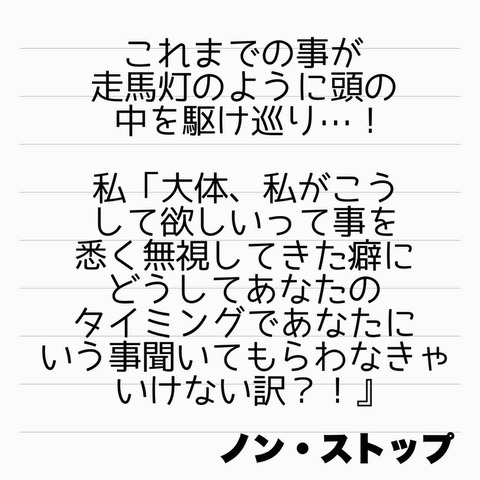 これまでの事が
走馬灯のように頭の
中を駆け巡り…！
私「大体、私がこう
して欲しいって事を
悉く無視してきた癖に
どうしてあなたの
タイミングであなたに
いう事聞いてもらわなきゃ
いけない訳？！』
ノン・ストップ